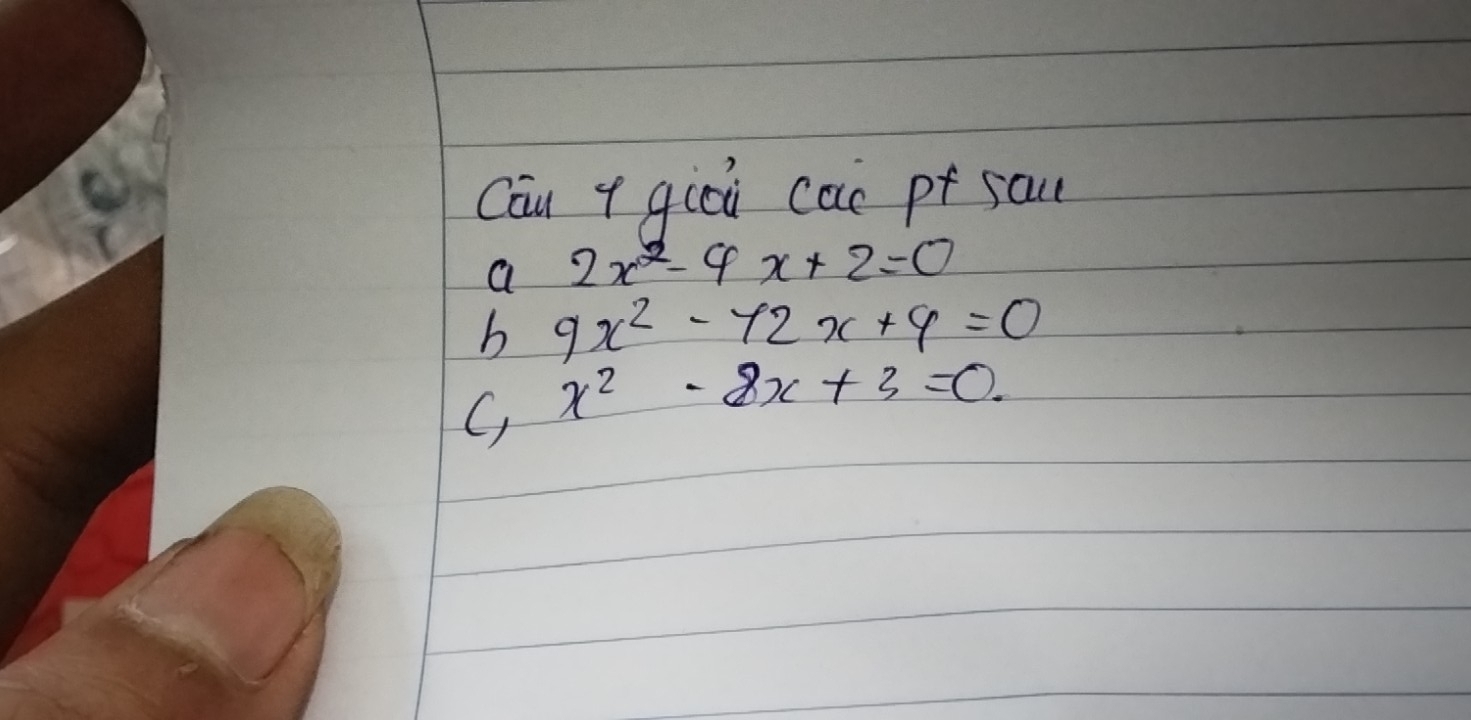 Câu 1 giải các pt sau
a 2x² - 4x + 2 = 0
b 9x² - 12x + 4 = 0
c, x² - 8x + 3 = 0.